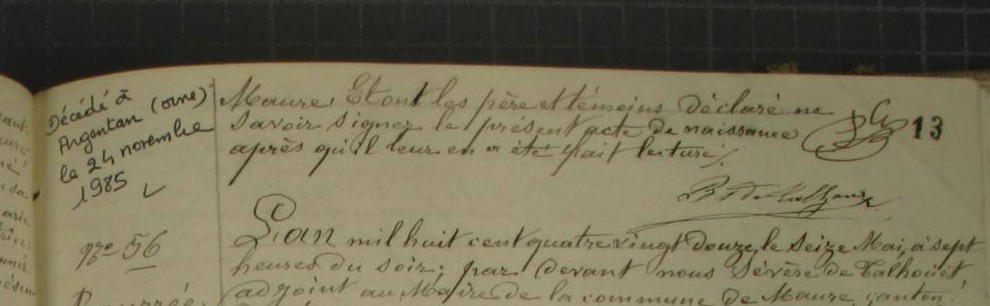 Décédé à
Argentan (orne)
le 24 novembre
1985
Maure. Et ont les père et témoins déclaré ne
Savoir signer le présent acte de naissance
après qu'il leur en a été fait lecture.
13
N° 56
L'an mil huit cent quatre vingt douze, le Seize Mai, à sept
heures du soir; par devant nous Sévère de Talhouët
adjoint au Maire de la commune de Maure, canton